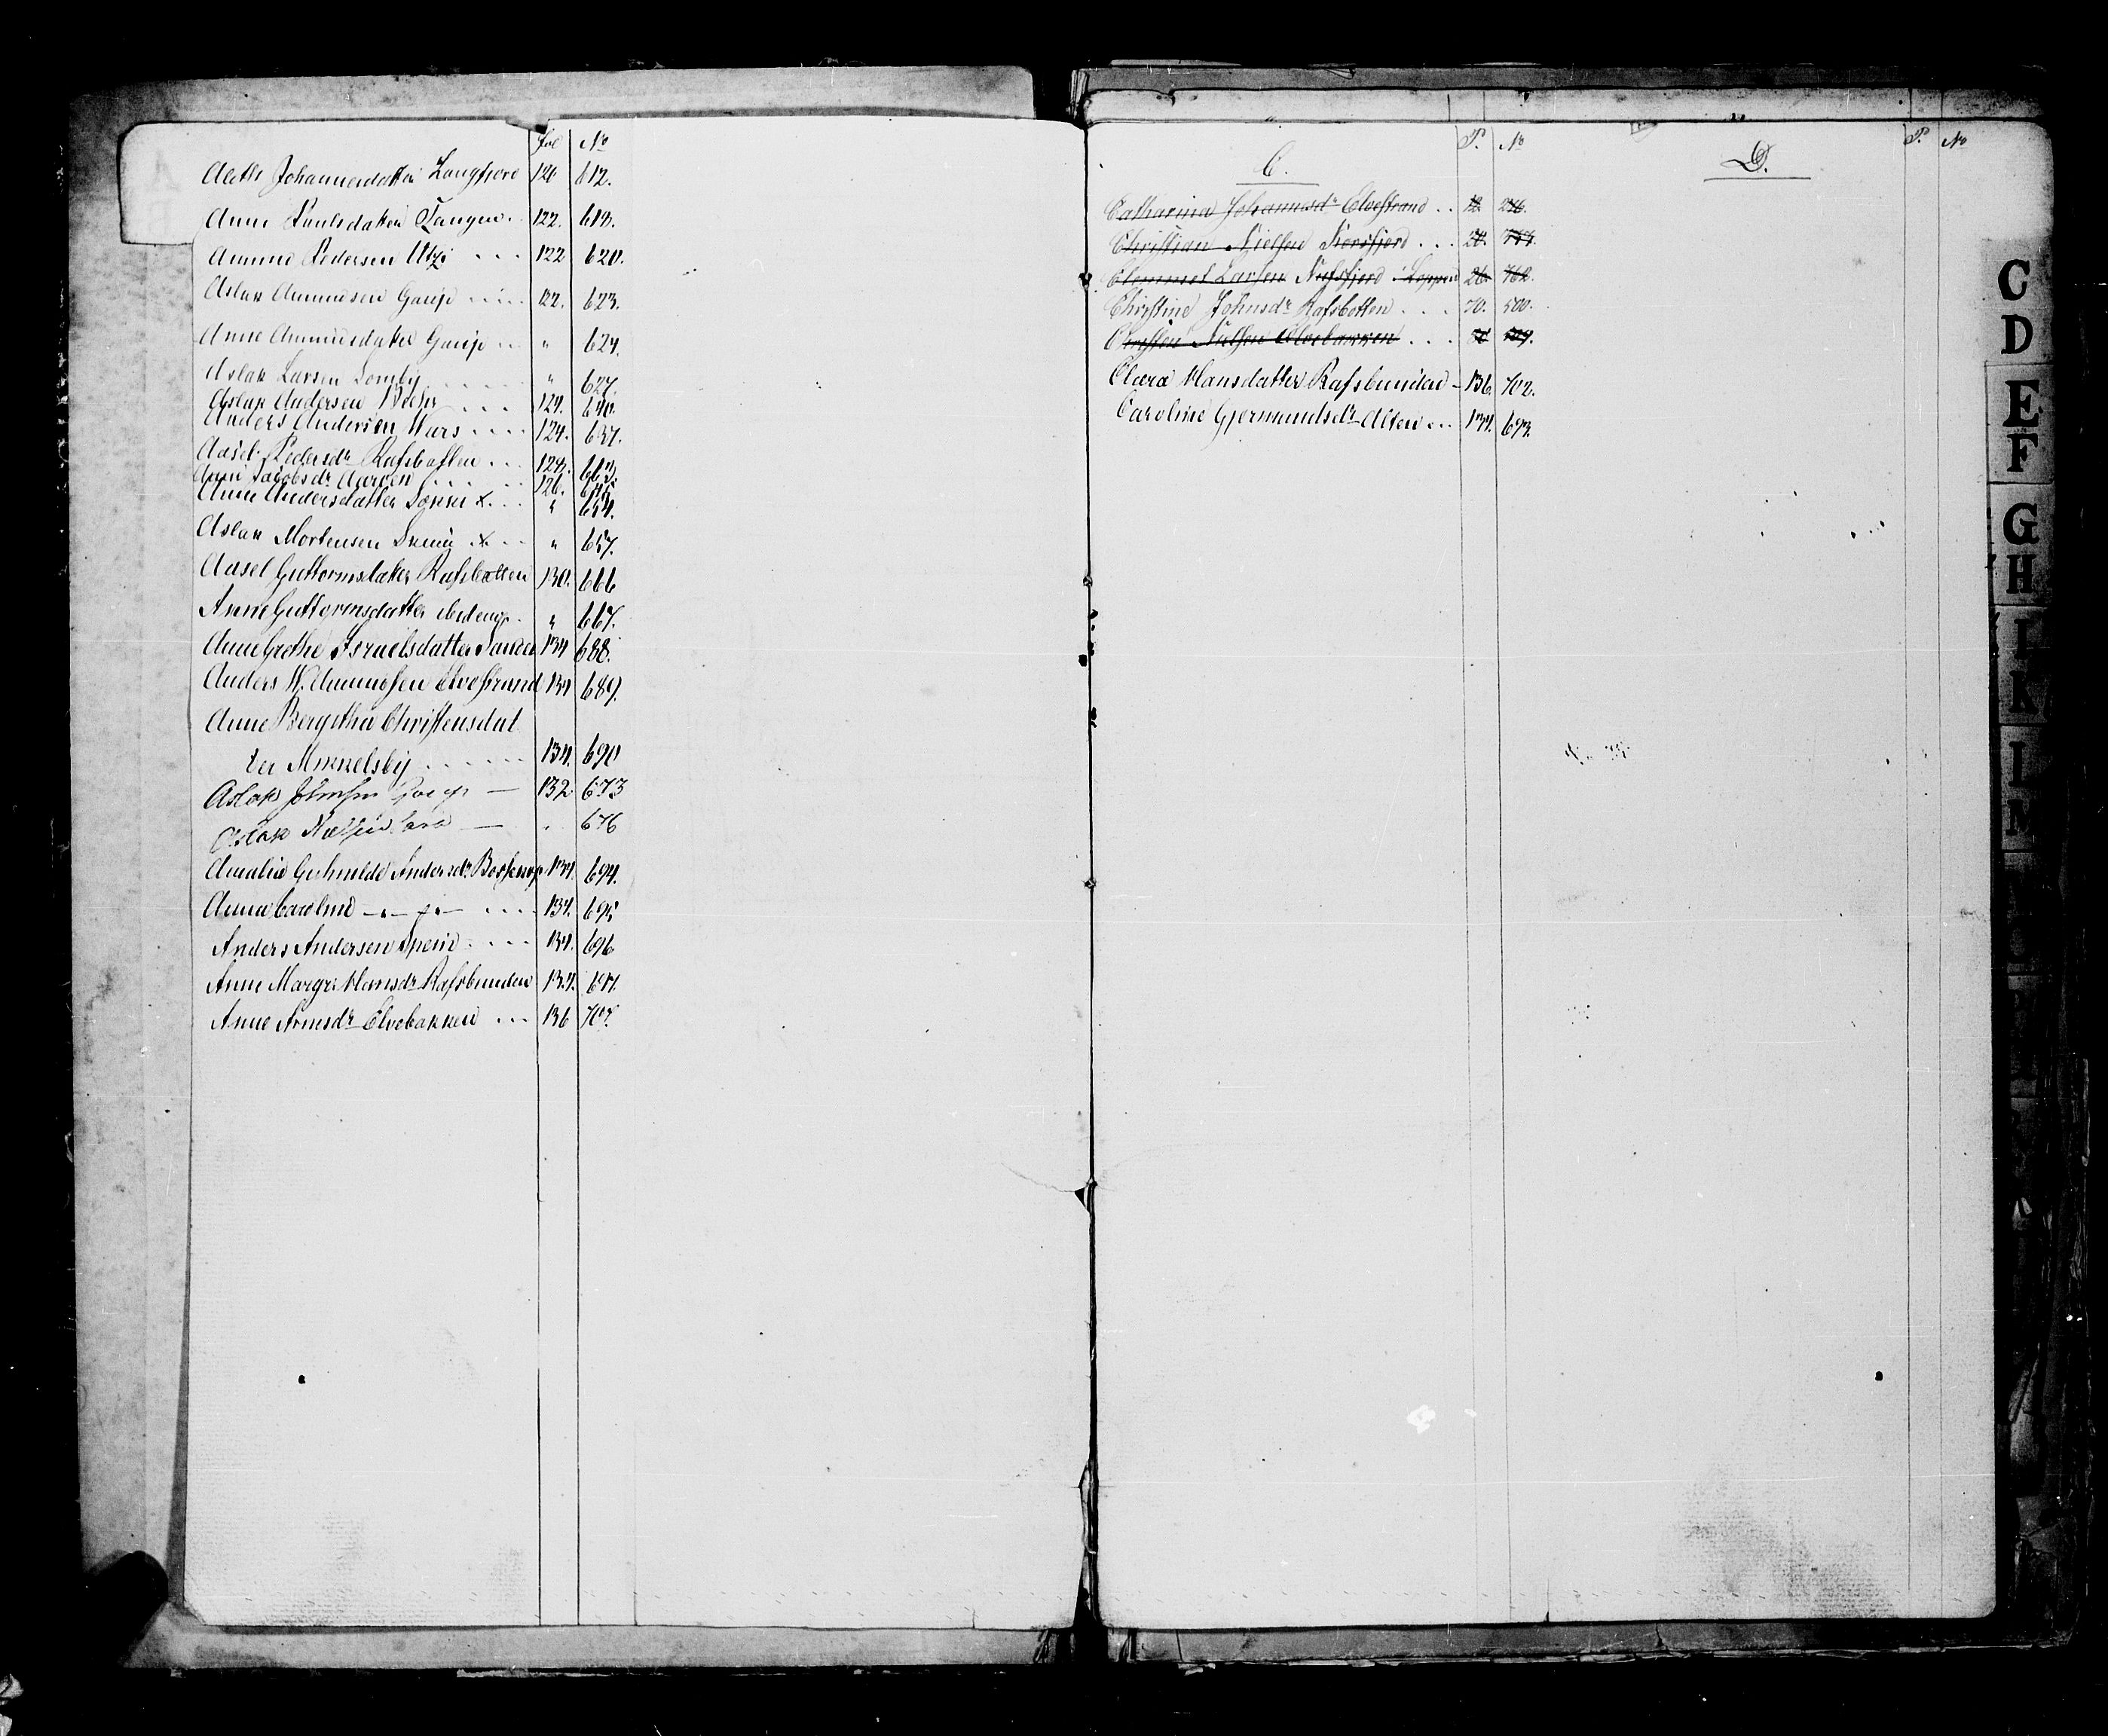 Fol No
Johannesdatter Langfjord 120 612.
Anne Paulsdatter Tangen. 122. 619.
Ammund Pedersen Utzi 122 620.
Aslak Ammundsen Gaup 122. 623.
Anne Ammundsdatter Gaup " 624.
Aslak Larsen Somby " 627.
Aslak Andersen 124. 640.
Anders Andersen Wars 124. 637.
Aasel Pedersdr Rafsbotten
Anne Jacobsdr 126.
Anne Andersdatter x. " 654.
Aslak Mortensen x " 657.
Aasel Guttormsdatter Rafsbotten 130. 666
Anne Guttormsdatter ibidem " 667.
Ane Grethe Israelsdatter 134 688.
Anders W. Ammundsen Elvestrand 134 689.
Anne Bergitha Christensdat
ter Mikkelsby 134. 690
Aslak Johnsen Gaup — 132 673
Aslak Nielsen Sara — " 676
Amalie Gunhilde Andersdr Bossekop 134. 694.
Anna Caroline 134. 695
Anders Andersen Spein 134. 696
Anne Margr. Hansdr Rafsbunden 134.
Anne Arnesdr Elvebakken 136 707.
C. P. No
Catharina Johannesdr Elvestrand 12. 216.
Christian Nielsen Korsfjord
Clemmet Larsen Nufsfjord Loppen 26. 762.
Christine Johnsdr Rafsbotten 70. 500.
Christen Nielsen Elvebakken
Clara Hansdatter Rafsbunden 136. 702.
Caroline Gjermundsdr Alten 134. 693.
D. P. No
C
D
E
F
G
H
I
K
L